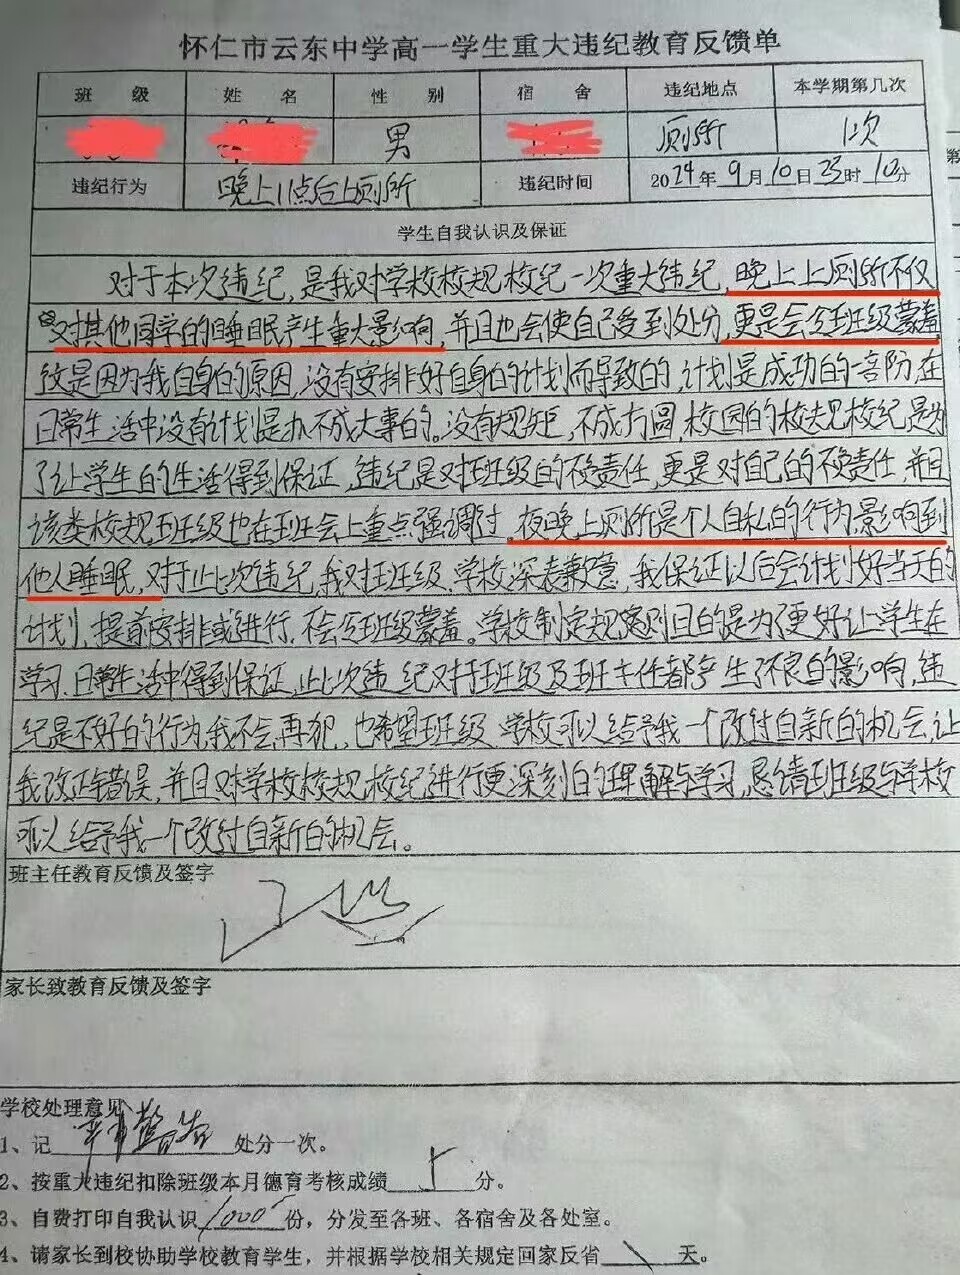 怀仁市云东中学高一学生重大违纪教育反馈单
班 级 姓 名 性 别 宿 舍 违纪地点 本学期第几次
男 厕所 1次
违纪行为 晚上11点后上厕所 违纪时间 2024年9月10日23时10分
学生自我认识及保证
对于本次违纪,是我对学校校规校纪一次重大违纪,晚上上厕所不仅
对其他同学的睡眠产生重大影响,并且也会使自己受到处分,更是会令班级蒙羞
这是因为我自身的原因,没有安排好自身的计划而导致的,计划是成功的一部分,在
日常生活中没有计划是办不成大事的。没有规矩,不成方圆,校园的校规校纪是为
了让学生的生活得到保证,违纪是对班级的不负责任,更是对自己的不负责任,并且
该类校规班级也在班会上重点强调过,夜晚上厕所是个人自私的行为,影响到
他人睡眠,对于此次违纪,我对班级、学校深表歉意,我保证以后会计划好当天的
计划,提前安排或进行,不会令班级蒙羞。学校制定规则目的是为了更好让学生在
学习、日常生活中得到保证,此次违纪对班级及班主任都产生了不良的影响,违
纪是不好的行为,我不会再犯,也希望班级、学校可以给予我一个改过自新的机会,让
我改正错误,并且对学校校规校纪进行更深刻的理解与学习,恳请班级与学校
可以给予我一个改过自新的机会。
班主任教育反馈及签字
家长致教育反馈及签字
学校处理意见
1、记 严重警告 处分一次。
2、按重大违纪扣除班级本月德育考核成绩 5 分。
3、自费打印自我认识 1000 份,分发至各班、各宿舍及各处室。
4、请家长到校协助学校教育学生,并根据学校相关规定回家反省 天。